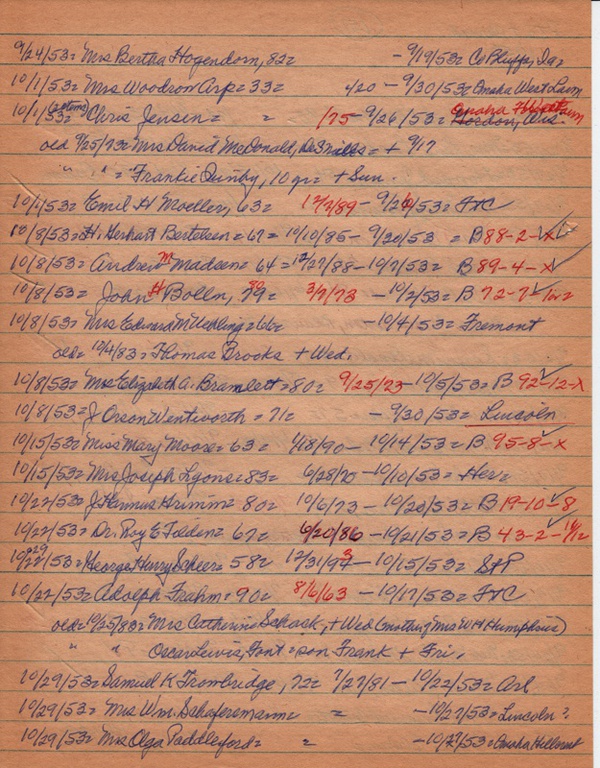 9/24/53= Mrs Bertha Hogendorn, 82= - 9/19/53= Co Bluffs, Ia=
10/1/53= Mrs Woodrow Arp= 33= 4/20 - 9/30/53= Omaha West Lawn
10/1/53= (2 items) Chris Jensen= = /75 - 9/26/53= Omaha Forest Lawn Gordon, Wis.
old 9/25/73= Mrs David McDonald, = + 9/17
" " = Frankie Quinby, 10 yr= + Sun.
10/1/53= Emil H Moeller, 63= 12/7/89 - 9/26/53= FtC
10/8/53= H. Herhart Bertelsen= 67= 10/10/85 - 9/20/53 = B 88-2-x
10/8/53= Andrew M Madsen= 64= 12/27/88 - 10/7/53= B 89-4-x
10/8/53= John H Bolln, 80= 3/9/73 - 10/2/53= B 72-7-
10/8/53= Mrs Edward M Uehling= 66= - 10/4/53= Fremont
old= 10/4/83= Thomas Brooks + Wed.
10/8/53= Mrs Elizabeth A. Bramlett= 80= 9/25/73 - 10/5/53= B 92-12-x
10/8/53= J Orson Wentworth = 71= - 9/30/53= Lincoln
10/15/53= Miss Mary Moore= 63= 4/8/90 - 10/14/53= B 95-8-x
10/15/53= Mrs Joseph Lyons= 83= 6/28/70 - 10/10/53= Her=
10/22/53= J Hannus Grimm= 80= 10/6/73 - 10/20/53= B 19-10-8
10/22/53= Dr. Roy E Felden= 67= 6/20/86 - 10/21/53= B 43-2-
10/29/53= George Harry Scheer= 58= 12/31/93 - 10/15/53= StP
10/22/53= Adolph Frahm= 90= 8/6/63 - 10/17/53= FtC
old= 10/25/83= Mrs Catherine Schack, + Wed (mother/Mrs W H Humphries)
" " Oscar Lewis, Font= son Frank + Fri.
10/29/53= Samuel K Trombridge, 72= 7/27/81 - 10/22/53= Arl
10/29/53= Mrs Wm. Schafersmann= = - 10/27/53= Lincoln?
10/29/53= Mrs Olga Paddleford= = - 10/27/53= Omaha Hillcrest